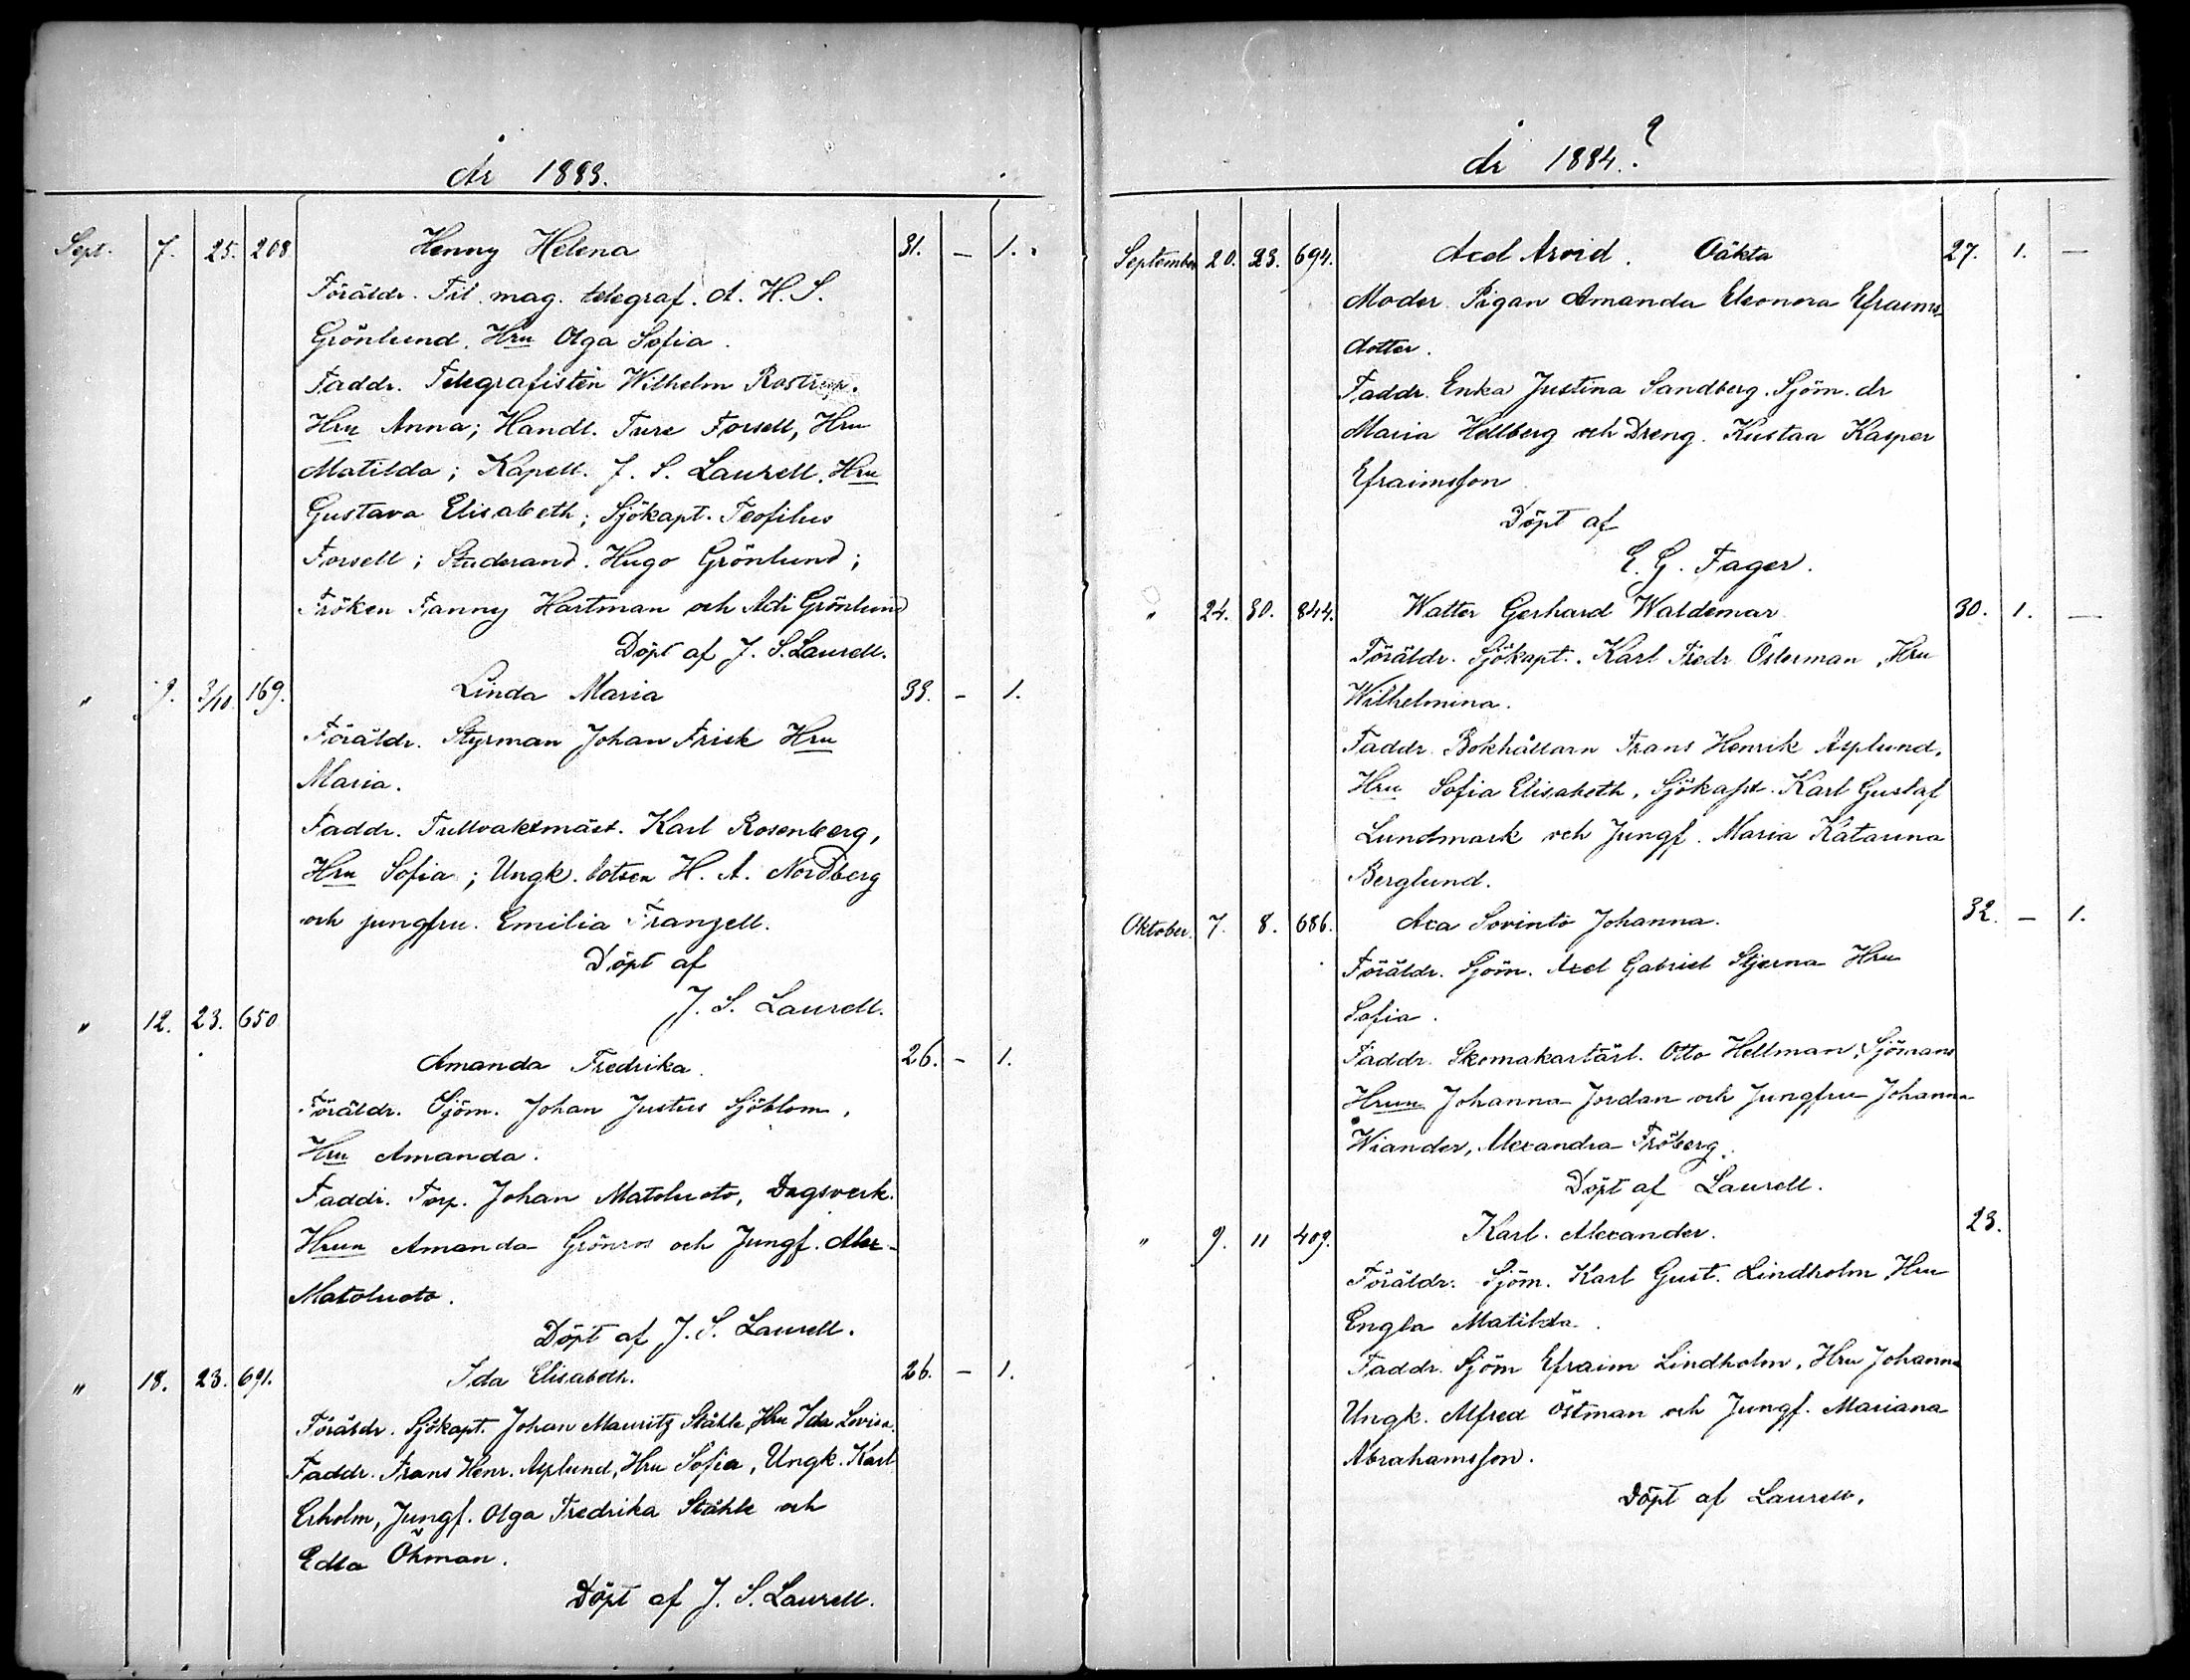 År 1883.
Sept. 7. 25. 208 Henny Helena 31. — 1.
Föräldr. Fil. mag. telegraf. A. H. S.
Grönlund, Hru Olga Sofia.
Faddr. Telegrafisten Wilhelm
Hru Anna; Handl. Ture Forsell, Hru
Matilda; Kapell. J. S. Laurell, Hru
Gustava Elisabeth; Sjökapt. Teofilus
Forsell; Studerand. Hugo Grönlund;
Fröken Fanny Hartman och Adi Grönlund
Döpt af J. S. Laurell.
" 9. 3/10. 169. Linda Maria 33. — 1.
Föräldr. Styrman Johan Frisk Hru
Maria.
Faddr. Tullvaktmäst. Karl Rosenberg,
Hru Sofia; Ungk. lotsen H. A. Nordberg
och jungfru. Emilia Franzell.
Döpt af
J. S. Laurell.
" 12. 23. 650
Amanda Fredrika. 26. — 1.
Föräldr. Sjöm. Johan Justus Sjöblom,
Hru Amanda.
Faddr. Torp. Johan Matoluoto, Dagsverk.
Hrun Amanda Grönros och Jungf. Alex.
Matoluoto.
Döpt af J. S. Laurell.
" 18. 23. 691. Ida Elisabeth. 26. — 1.
Föräldr. Sjökapt. Johan Mauritz Ståhle, Hru Ida Lovisa.
Faddr. Frans Henr. Asplund, Hru Sofia, Ungk. Karl
Erholm, Jungf. Olga Fredrika Ståhle och
Edla Öhman.
Döpt af J. S. Laurell.
År 1884.?
September 20. 23. 694. Axel Arvid. Oäkta 27. 1. —
Moder Pigan Amanda Eleonora Efraims-
dotter.
Faddr. Enka Justina Sandberg. Sjöm. dr
Maria Hellberg och Dreng. Kustaa Kasper
Efraimsson
Döpt af
E. G. Fager.
" 24. 30. 844. Walter Gerhard Waldemar 30. 1. —
Föräldr. Sjökapt. Karl Fredr Österman, Hru
Wilhelmina.
Faddr. Bokhållarn Frans Henrik Asplund,
Hru Sofia Elisabeth, Sjökapt. Karl Gustaf
Lundmark och Jungf. Maria Katarina
Berglund.
Oktober. 7. 8. 686. Johanna. 32. — 1.
Föräldr. Sjöm. Axel Gabriel Stjerna Hru
Sofia.
Faddr. Skomakarlärl. Otto Hellman, Sjömans
Hrun Johanna Jordan och Jungfru Johanna
Wiander, Alexandra Fröberg.
Döpt af Laurell.
" 9. 11 409. Karl. Alexander. 23.
Föräldr. Sjöm. Karl Gust. Lindholm, Hru
Engla Matilda.
Faddr. Sjöm Efraim Lindholm, Hru Johanna
Ungk. Alfred Östman och Jungf. Mariana
Abrahamsson.
Döpt af Laurell.